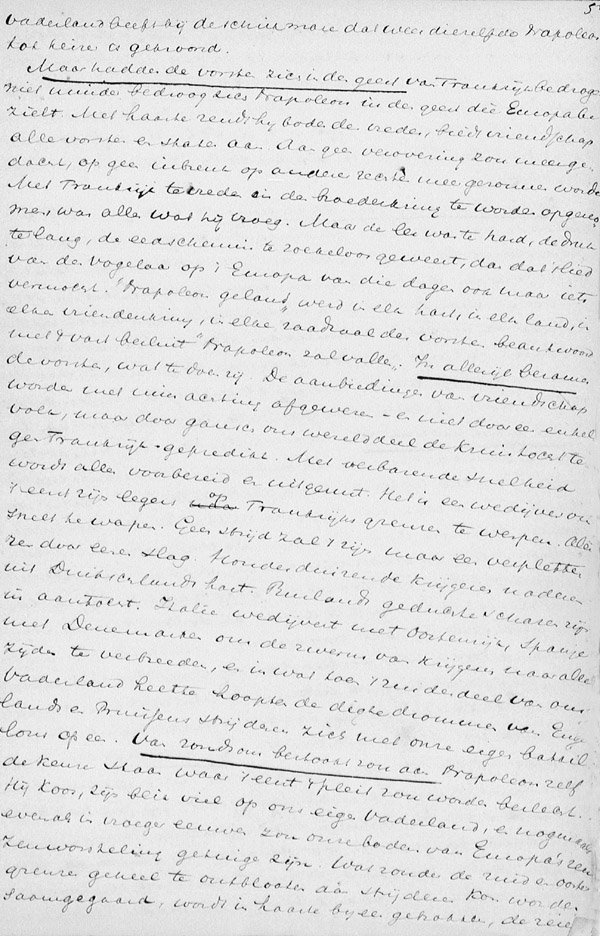 5
vaderland beeft bij de schrikmare dat weer diezelfde Napoleon
tot keizer is gekroond.
Maar hadden de vorsten zich in den geest van Frankrijk bedrogen
niet minder bedroog zich Napoleon in de geest die Europa be-
zielt. Met haaste zendt hij boden des vredes, biedt vriendschap
alle vorsten en staten aan. Aan geen verovering zou meer ge-
dacht, op geen inbreuk op anderer rechten meer gezonnen worden
Met Frankrijk tevreden in de broederkring te worden opgeno-
men, was alles wat hij vroeg. Maar de les was te hard, de druk
te lang, de eedschennis te roekeloos geweest, dan dat 't lied
van den vogelaar op 't Europa van die dagen ook maar iets
vermocht. "Napoleon geland" werd in elk hart, in elk land, in
elke vriendenkring, in elke raadzaal der vorsten beantwoord
met 't vast besluit "Napoleon zal vallen". In allerijl beramen
de vorsten, wat te doen zij. De aanbiedingen van vriendschap
worden met minachting afgewezen – en niet door een enkel
volk, maar door gansch ons werelddeel de kruistocht te-
gen Frankrijk gepredikt. Met verbazende snelheid
wordt alles voorbereid en uitgerust. Het is een wedijver om
't eerst zijn legers op Frankrijks grenzen te werpen. Alles
snelt te wapen. Geen strijd zal 't zijn maar een verplette-
ren door eenen slag. Honderdduizende krijgers naderen
uit Duitschlands hart. Ruslands geduchte scharen zijn
in aantocht. Italië wedijvert met Oostenrijk, Spanje
met Denemarken om de zwerm van krijgers naar alle
zijden te verbreeden, en in wat toen 't zuiderdeel van ons
Vaderland heette hoopten de dichte drommen van Enge-
lands en Pruisens strijderen zich met onze eigen batail-
lons op een. Van rondsom bestookt zou aan Napoleon zelf
de keuze staan waar 't eerst 't pleit zou worden beslecht.
Hij koos, zijn blik viel op ons eigen vaderland, en nogmaals
evenals in vroeger eeuwen zou onze bodem van Europa's reu-
zenworsteling getuige zijn. Wat zonder de zuid en ooster
grenzen geheel te ontblooten aan strijderen kon worden
saamgegaard, wordt in haaste bijeen getrokken, de